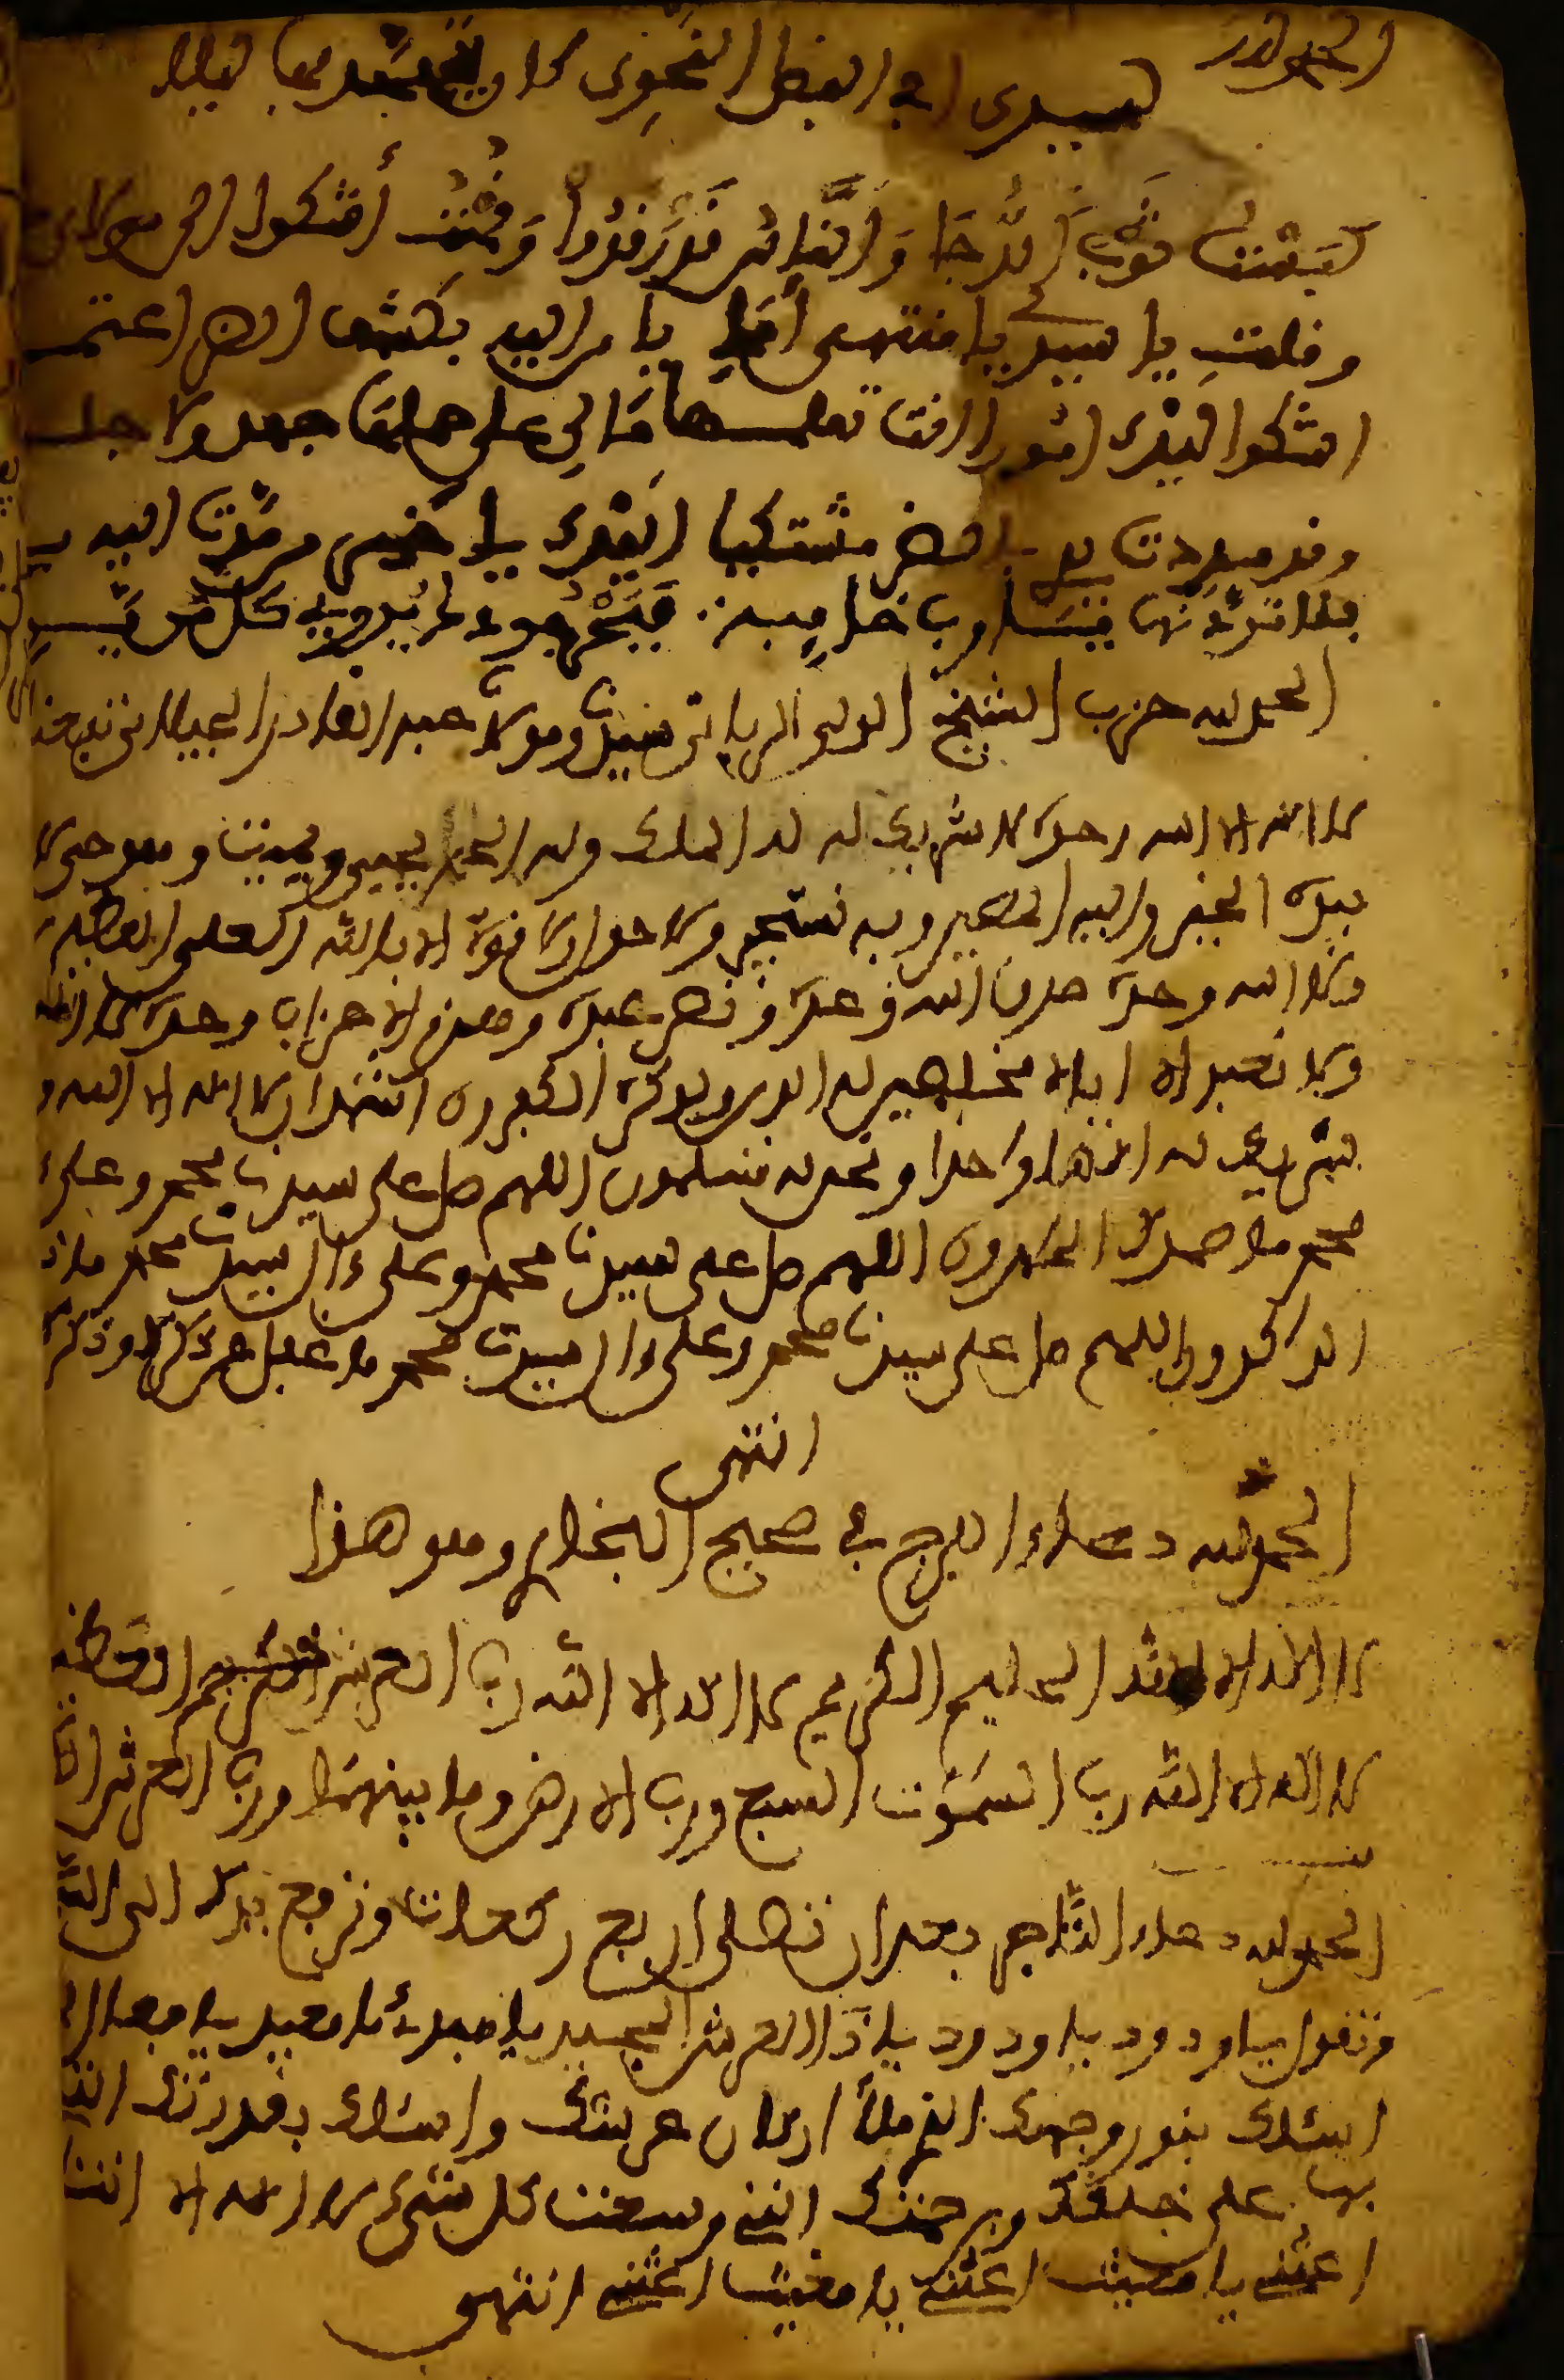 الحمد لله
لسيدي أبي الفضل النحوي كان يتهجد بها ليلا
لبست ثوب الدجا والناس قد رقدوا وقمت أشكوا الى مولاي
وقلت يا سيدي يا منتهى أملي يا من اليه بكشف الضر اعتمد
اشكوا اليك امورا انت تعلمها مالي على حملها جهد ولا جلد
وقد مددت يدي بالضر مشتكيا اليك يا خير من مدت اليه يد
فلا تردنها يا رب خايبة فبحر جودك يروي كل من يرد
الحمد لله حزب الشيخ الولي الرباني سيدنا ومولانا عبد القادر الجيلاني نفعنا
لا اله الا الله وحده لا شريك له له الملك وله الحمد يحيي ويميت وهو حي لا
بيده الخير واليه المصير وبه نستجير ولا حول ولا قوة الا بالله العلي العظيم
ولا الله وحده صدق الله وعده ونصر عبده وهزم الاحزاب وحده لا اله
ولا نعبد الا اياه مخلصين له الدين ولو كره الكفرون اشهد ان لا اله الا الله و
شريك له الها واحدا ونحن له مسلمون اللهم صل على سيدنا محمد وعلى
محمد ما حمدك الحمدون اللهم صل على سيدنا محمد وعلى ءال سيدنا محمد ما ذ
الذاكرون اللهم صل على سيدنا محمد وعلى ءال سيدنا محمد ما غفل عن ذكرك وذكره
انتهى
الحمد لله دعاء الفرج في صحيح البخاري وهو هذا
لا اله الا الله الحليم الكريم لا اله الا الله رب العرش العظيم
لا اله الا الله رب السموت السبع ورب الارض وما بينهما ورب العرش ال
الحمد لله دعاء التاجر بعد ان تصلي اربع ركعات وترفع يدك الى الله
وتقول يا ودود يا ودود يا ذا العرش المجيد يا مبدئ يا معيد يا فعال
اسئلك بنور وجهك الذي ملأ اركان عرشك واسئلك بقدرتك التي
بها على خلقك وبرحمتك التي وسعت كل شيء لا اله الا انت
اغثني يا مغيث اغثني يا مغيث اغثني انتهى